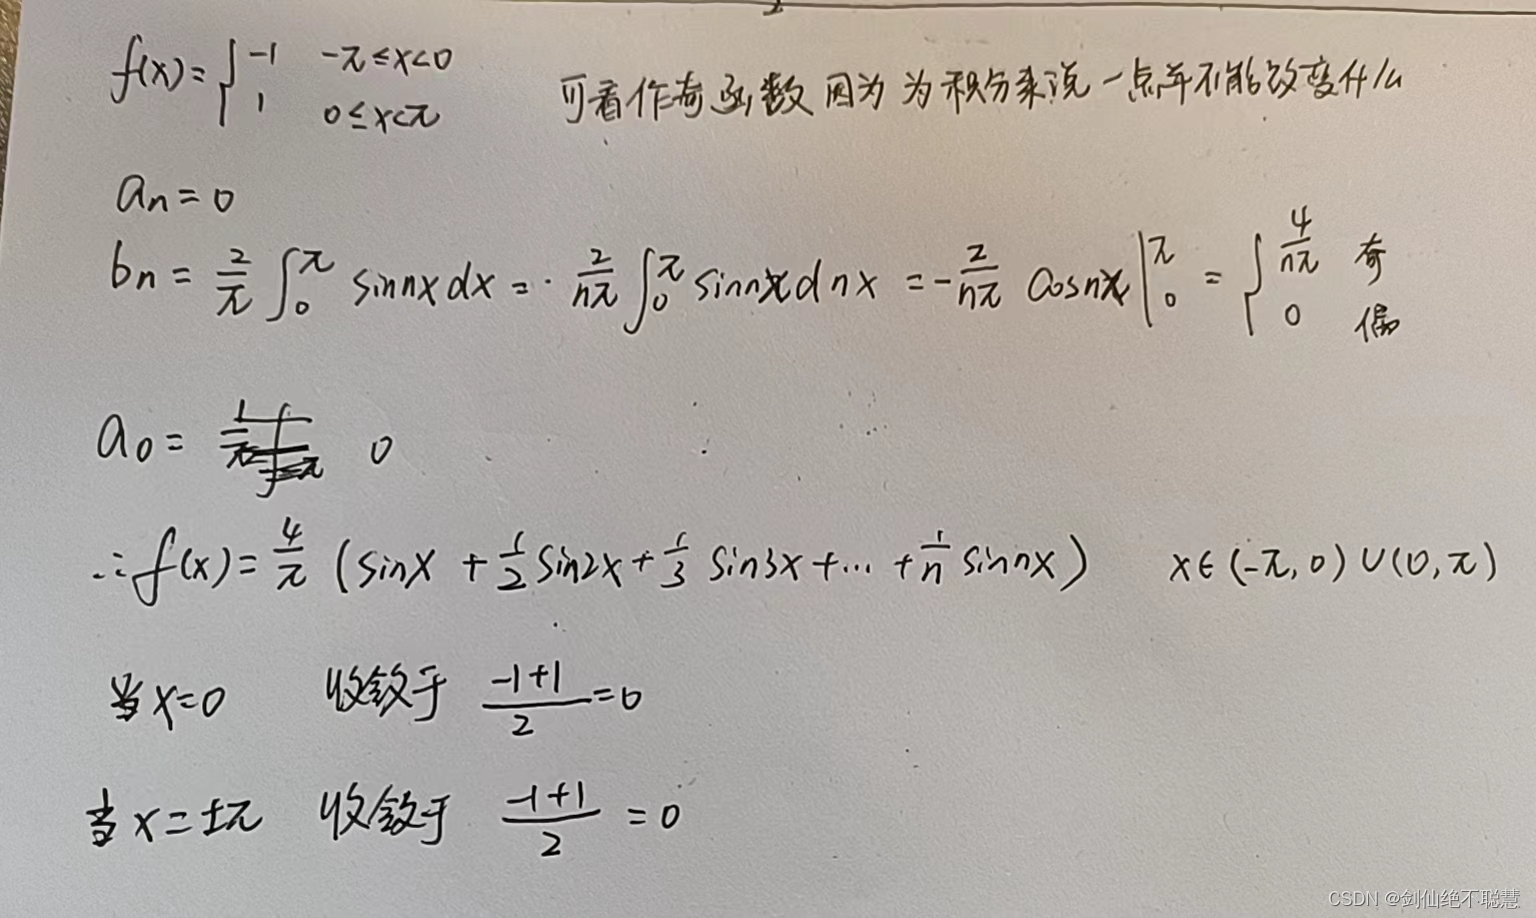 f(x)={ -1 -π≤x<0
1 0≤x<π
可看作奇函数因为为积分来说一点并不能改变什么
an=0
bn=2/π ∫0^π sinnxdx=·2/nπ ∫0^π sinnxdnx=-2/nπ cosnx|0^π={ 4/nπ 奇
0 偶
a0= 0
∴f(x)=4/π (sinx+1/2 sin2x+1/3 sin3x+...+1/n sinnx) x∈(-π,0)∪(0,π)
当x=0 收敛于 -1+1/2=0
当x=±π 收敛于 -1+1/2=0
CSDN @剑仙绝不聪慧